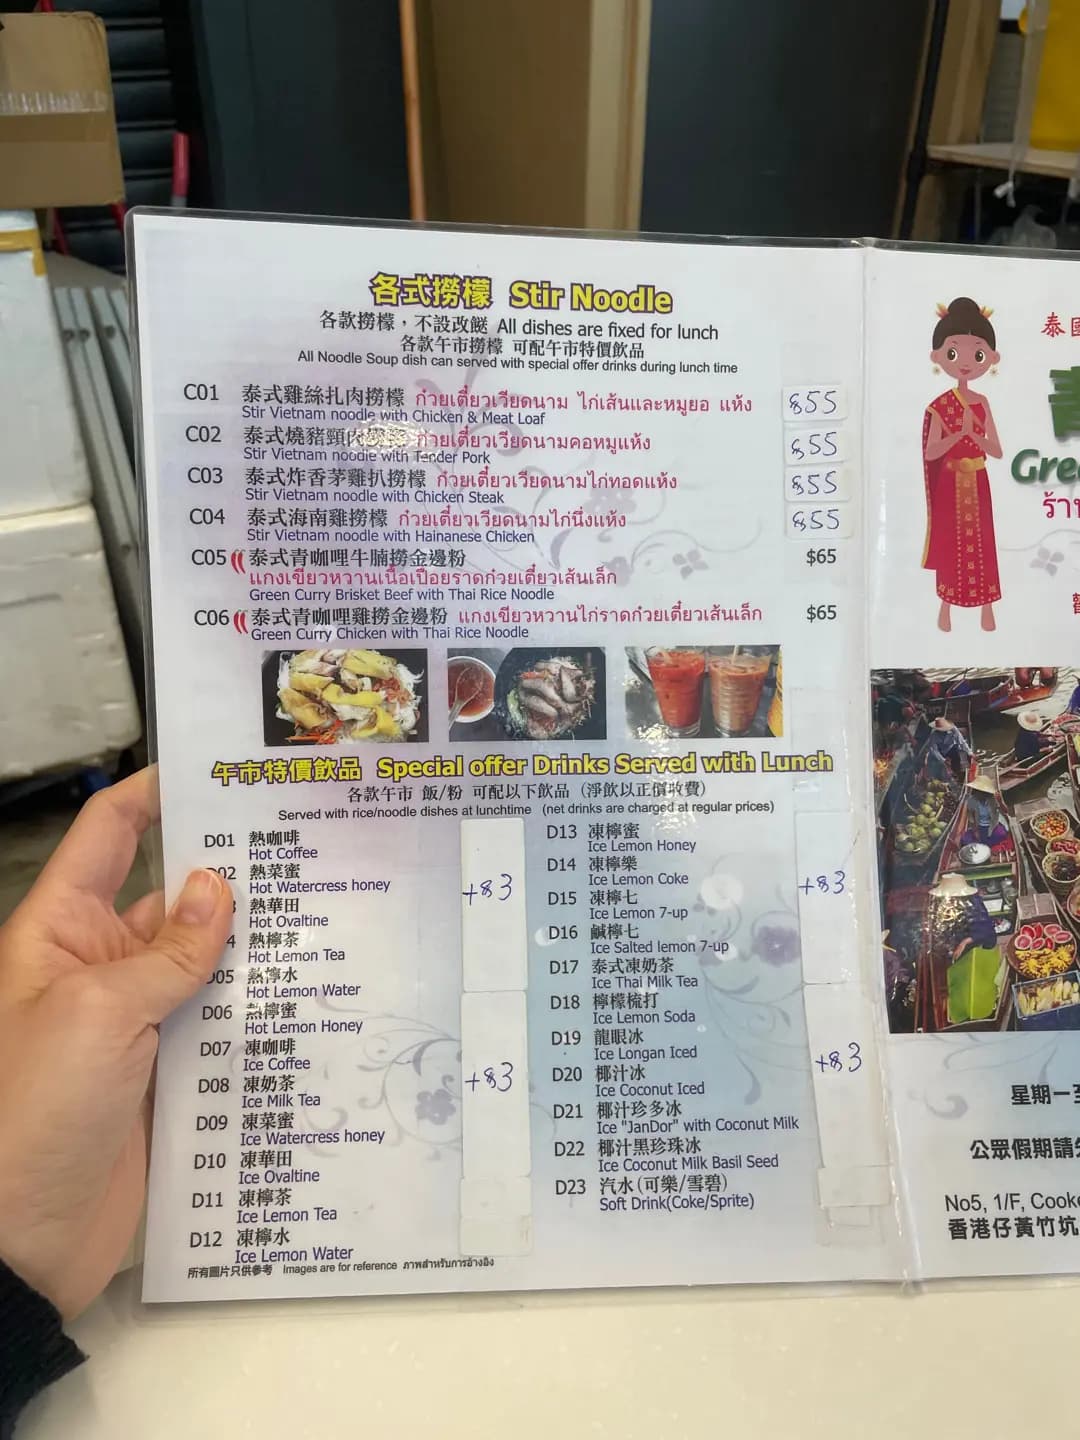 各式撈檬 Stir Noodle
各款撈檬，不設改餸 All dishes are fixed for lunch
各款午市撈檬 可配午市特價飲品
All Noodle Soup dish can served with special offer drinks during lunch time
C01 泰式雞絲扎肉撈檬 ก๋วยเตี๋ยวเวียดนาม ไก่เส้นและหมูยอ แห้ง $55
Stir Vietnam noodle with Chicken & Meat Loaf
C02 泰式燒豬頸肉撈檬 ก๋วยเตี๋ยวเวียดนามคอหมูแห้ง $55
Stir Vietnam noodle with Tender Pork
C03 泰式炸香茅雞扒撈檬 ก๋วยเตี๋ยวเวียดนามไก่ทอดแห้ง $55
Stir Vietnam noodle with Chicken Steak
C04 泰式海南雞撈檬 ก๋วยเตี๋ยวเวียดนามไก่นึ่งแห้ง $55
Stir Vietnam noodle with Hainanese Chicken
C05 泰式青咖哩牛腩撈金邊粉 $65
แกงเขียวหวานเนื้อเปื่อยราดก๋วยเตี๋ยวเส้นเล็ก
Green Curry Brisket Beef with Thai Rice Noodle
C06 泰式青咖哩雞撈金邊粉 แกงเขียวหวานไก่ราดก๋วยเตี๋ยวเส้นเล็ก $65
Green Curry Chicken with Thai Rice Noodle
午市特價飲品 Special offer Drinks Served with Lunch
各款午市 飯/粉 可配以下飲品 (淨飲以正價收費)
Served with rice/noodle dishes at lunchtime (net drinks are charged at regular prices)
D01 熱咖啡
Hot Coffee
02 熱菜蜜
Hot Watercress honey
+$3
熱華田
Hot Ovaltine
4 熱檸茶
Hot Lemon Tea
D05 熱檸水
Hot Lemon Water
D06 熱檸蜜
Hot Lemon Honey
D07 凍咖啡
Ice Coffee
D08 凍奶茶
Ice Milk Tea
+$3
D09 凍菜蜜
Ice Watercress honey
D10 凍華田
Ice Ovaltine
D11 凍檸茶
Ice Lemon Tea
D12 凍檸水
Ice Lemon Water
D13 凍檸蜜
Ice Lemon Honey
D14 凍檸樂
Ice Lemon Coke
+$3
D15 凍檸七
Ice Lemon 7-up
D16 鹹檸七
Ice Salted lemon 7-up
D17 泰式凍奶茶
Ice Thai Milk Tea
D18 檸檬梳打
Ice Lemon Soda
D19 龍眼冰
Ice Longan Iced
+$3
D20 椰汁冰
Ice Coconut Iced
D21 椰汁珍多冰
Ice "JanDor" with Coconut Milk
D22 椰汁黑珍珠冰
Ice Coconut Milk Basil Seed
D23 汽水(可樂/雪碧)
Soft Drink(Coke/Sprite)
所有圖片只供參考 Images are for reference ภาพสำหรับการอ้างอิง
泰
Gree
ร้า
星期一至
公眾假期請
No5, 1/F, Cooke
香港仔黃竹坑